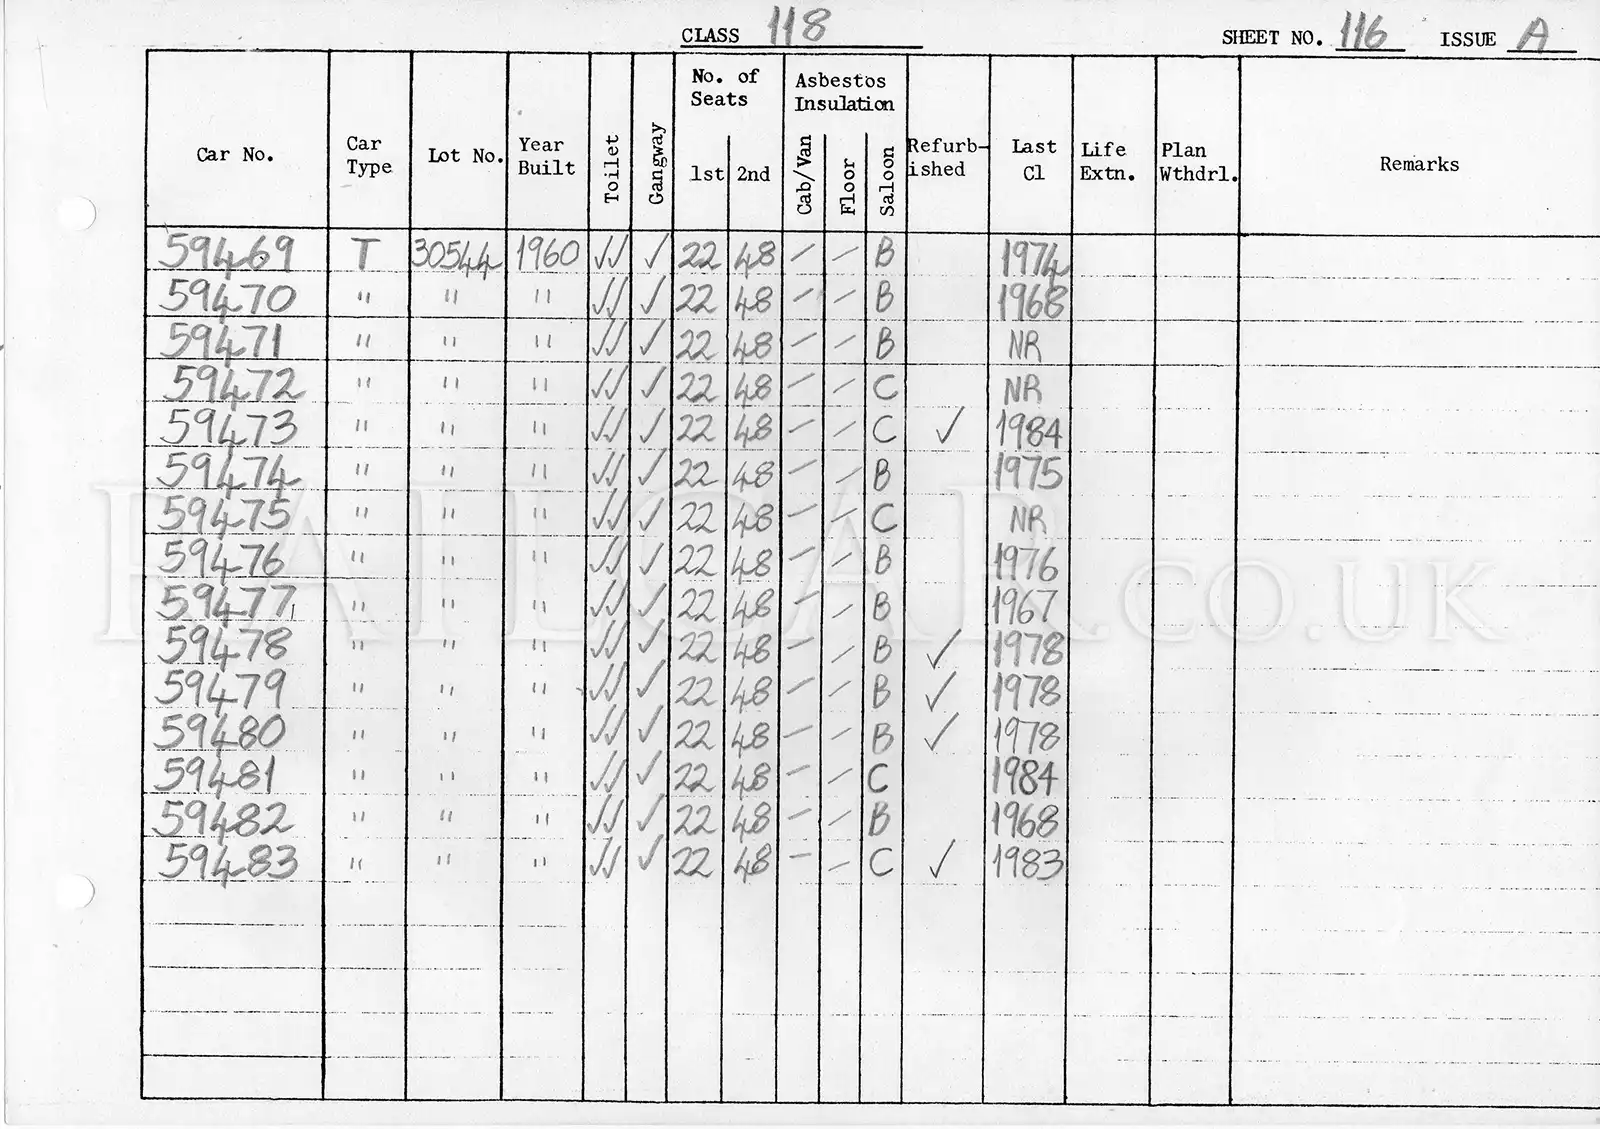 CLASS 118 SHEET NO. 116 ISSUE A
Car No. Car Type Lot No. Year Built Toilet Gangway No. of Seats 1st 2nd Asbestos Insulation Cab/Van Floor Saloon Refurb-ished Last Cl Life Extn. Plan Wthdrl. Remarks
59469 T 30544 1960 ✓✓ ✓ 22 48 — — B 1974
59470 " " " ✓✓ ✓ 22 48 — — B 1968
59471 " " " ✓✓ ✓ 22 48 — — B NR
59472 " " " ✓✓ ✓ 22 48 — — C NR
59473 " " " ✓✓ ✓ 22 48 — — C ✓ 1984
59474 " " " ✓✓ ✓ 22 48 — — B 1975
59475 " " " ✓✓ ✓ 22 48 — — C NR
59476 " " " ✓✓ ✓ 22 48 — — B 1976
59477 " " " ✓✓ ✓ 22 48 — — B 1967
59478 " " " ✓✓ ✓ 22 48 — — B ✓ 1978
59479 " " " ✓✓ ✓ 22 48 — — B ✓ 1978
59480 " " " ✓✓ ✓ 22 48 — — B ✓ 1978
59481 " " " ✓✓ ✓ 22 48 — — C 1984
59482 " " " ✓✓ ✓ 22 48 — — B 1968
59483 " " " ✓✓ ✓ 22 48 — — C ✓ 1983
RAILCAR.CO.UK